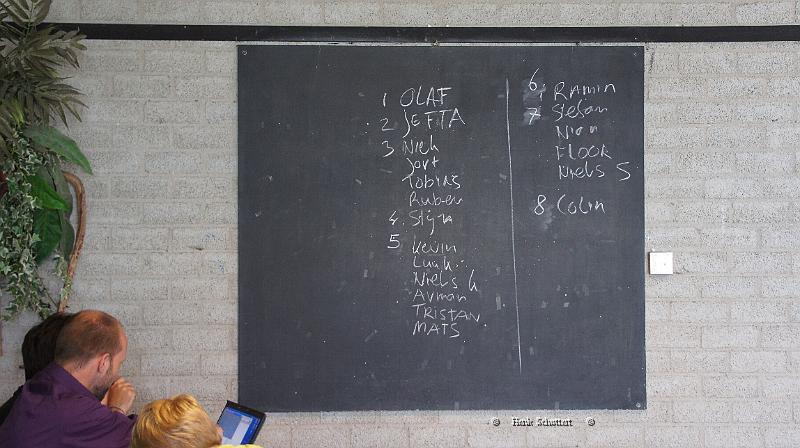 1 OLAF
2 JEFTA
3 Niek
Jort
Tobias
Ruben
4. Stijn
5 Kevin
Luuk
Niels k
Ayman
TRISTAN
MATS
6 Ramin
7 Stefan
FLOOR
Niels S
8 Colin
© Henk Schuttert ©